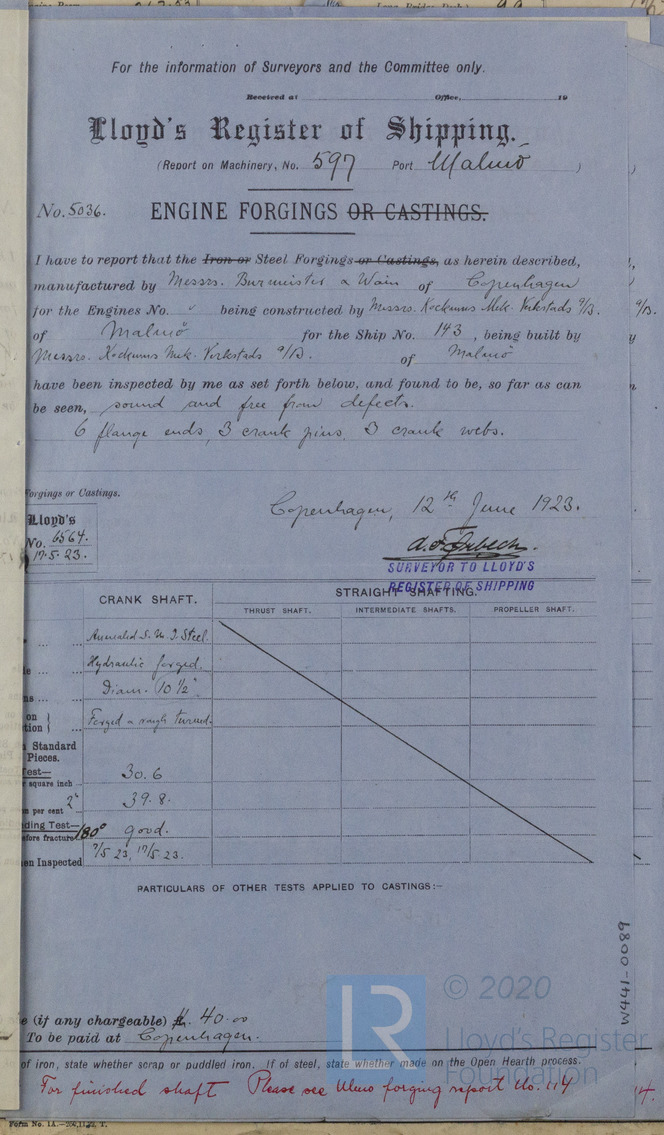 For the information of Surveyors and the Committee only.
Received at Office, 19
Lloyd's Register of Shipping.
(Report on Machinery, No. 597 Port Malmö )
No. 5036. ENGINE FORGINGS OR CASTINGS.
I have to report that the Iron or Steel Forgings or Castings, as herein described,
manufactured by Messrs. Burmeister & Wain of Copenhagen
for the Engines No. being constructed by Messrs. Kockums Mek. Verkstads A/B.
of Malmö for the Ship No. 143, being built by
Messrs. Kockums Mek. Verkstads A/B. of Malmö
have been inspected by me as set forth below, and found to be, so far as can
be seen, sound and free from defects.
6 flange ends, 3 crank pins, 3 crank webs.
Forgings or Castings.
Copenhagen, 12th June 1923.
Lloyd's
No. 6564.
17.5.23.
SURVEYOR TO LLOYD'S
REGISTER OF SHIPPING
CRANK SHAFT. STRAIGHT SHAFTING.
THRUST SHAFT. INTERMEDIATE SHAFTS. PROPELLER SHAFT.
Annealed S. M. I. Steel.
Hydraulic forged.
Diam. 10 1/2"
Forged & rough turned.
Standard
Pieces.
Test—
square inch 30.6
per cent 2" 39.8.
ding Test—
fore fracture 180° good.
en Inspected 7/5 23, 17/5 23.
PARTICULARS OF OTHER TESTS APPLIED TO CASTINGS:—
W441-0089
e (if any chargeable) 40.00
To be paid at Copenhagen.
© 2020
Lloyd's Register
Foundation
of iron, state whether scrap or puddled iron. If of steel, state whether made on the Open Hearth process.
For finished shaft Please see forging report No. 114
Form No. 1A.